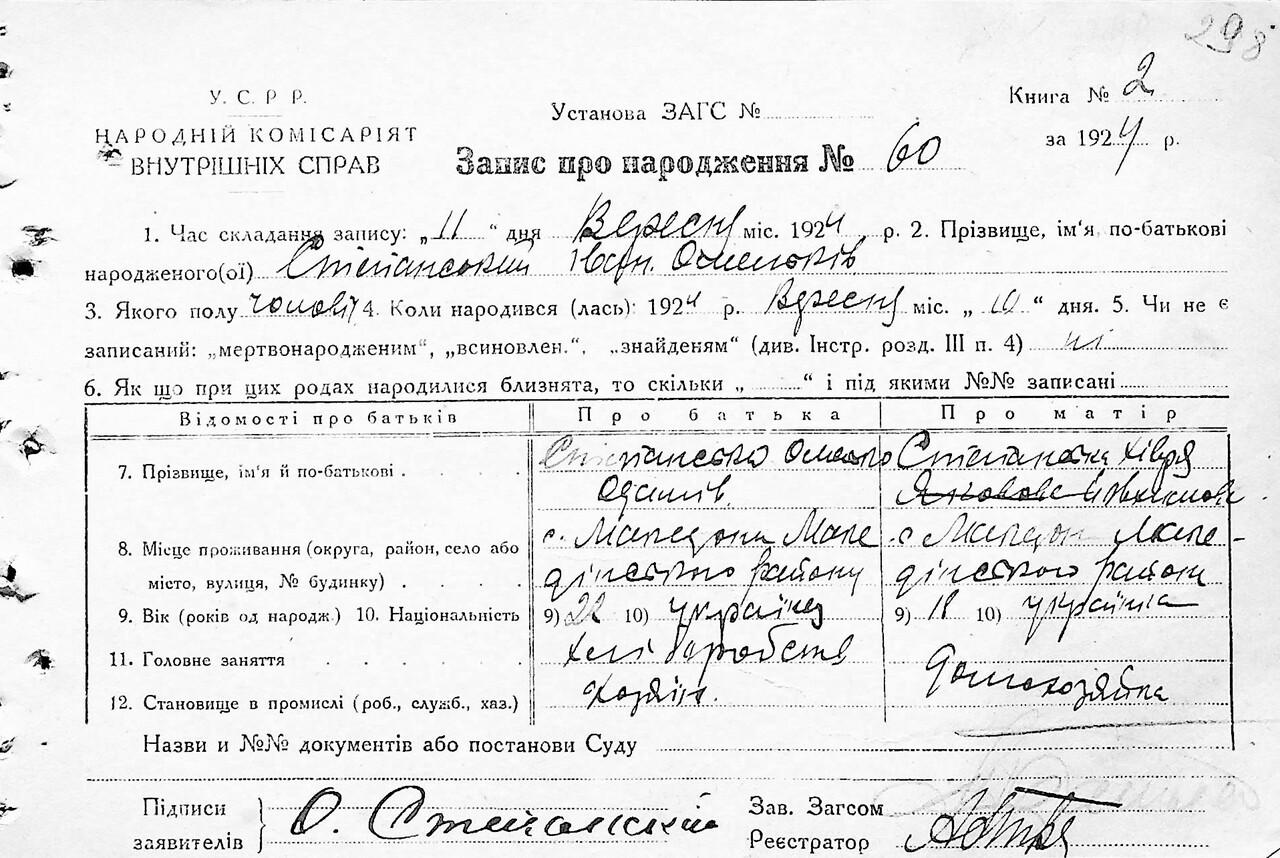 298
У. С. Р Р.
НАРОДНІЙ КОМІСАРІЯТ
ВНУТРІШНІХ СПРАВ
Установа ЗАГС №
Книга № 2
за 1924 р.
Запис про народження № 60
1. Час складання запису: „ 11 “ дня Вересня міс. 1924 р. 2. Прізвище, ім'я по-батькові
народженого(ої) Степанський Іван Омельків
3. Якого полу чолов 4. Коли народився (лась): 1924 р. Вересня міс. „ 10 “ дня. 5. Чи не є
записаний: „мертвонародженим“, „всиновлен.“, „знайденям“ (див. Інстр. розд. III п. 4) ні
6. Як що при цих родах народилися близнята, то скільки „ “ і під якими №№ записані
Відомості про батьків Про батька Про матір
7. Прізвище, ім'я й по-батькові Омелько Степанська Хівря
Адамів Яковова
8. Місце проживання (округа, район, село або с. Македони Маке с. Македон Маке-
місто, вулиця, № будинку) дінського району дінського району
9. Вік (років од народж.) 10. Національність 9) 22 10) українец 9) 18 10) українка
11. Головне заняття хліборобств
12. Становище в промислі (роб., служб., хаз.) хозяін. домохозяйка
Назви и №№ документів або постанови Суду
Підписи
заявителів О. Степанський
Зав. Загсом
Реєстратор